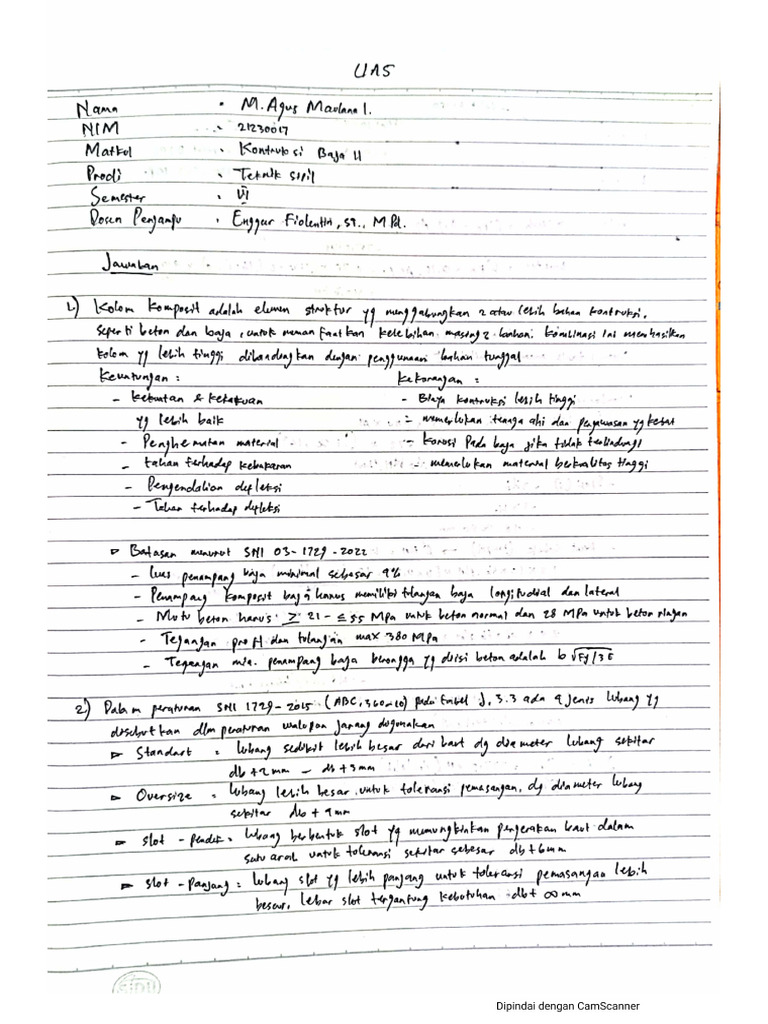 UAS
Nama : M. Agus Maolana I.
NIM : 21230017
Matkul : Kontruksi Baja II
Prodi : Teknik sipil
Semester : VI
Dosen Pengampu : Enggar Fiolentin, ST., M.Pd.
Jawaban
1.) Kolom komposit adalah elemen struktur yg menggabungkan 2 atau lebih bahan kontruksi,
seperti beton dan baja, untuk memanfaatkan kelebihan masing2 bahan. kombinasi ini menghasikan
kolom yg lebih tinggi dibandingkan dengan penggunaan bahan tunggal
Keuntungan : Kekurangan :
- kekuatan & kekakuan - Biaya kontruksi lebih tinggi
yg lebih baik - memerlukan tenaga ahi dan pengawasan yg ketat
- Penghematan material - Korosi Pada baja jika tidak terlindungi
- tahan terhadap kebakaran - memerlukan material berkualitas tinggi
- Pengendalian defleksi
- Tahan terhadap defleksi
▷ Batasan menurut SNI 03-1729-2022
- luas penampang baja minimal sebesar 4%
- Penampang komposit baja harus memiliki tulangan baja longitudial dan lateral
- Mutu beton harus ≥ 21 - ≤ 55 MPa untuk beton normal dan 28 MPa untuk beton ringan
- Tegangan profil dan tulangan max 380 MPa
- Tegangan min. penampang baja berongga yg diisi beton adalah b √Fy/3E
2.) Dalam peraturan SNI 1729-2015 (ABC, 360-10) pada tabel J, 3.3 ada 4 jenis lubang yg
disebutkan dlm peraturan walapun jarang digunakan
▷ Standart = lubang sedikit lebih besar dari baut dg diameter lubang sekitar
db + 2 mm - db + 3 mm
▷ Oversize = lubang lebih besar untuk toleransi pemasangan, dg diameter lubang
sekitar db + 4 mm
▷ slot - pendek = lubang berbentuk slot yg memungkinkan pergerakan baut dalam
satu arah untuk toleransi sekitar sebesar db + 6 mm
▷ slot - Panjang = lubang slot yg lebih panjang untuk toleransi pemasangan lebih
besar, lebar slot tergantung kebutuhan db + ∞ mm
SIDU
Dipindai dengan CamScanner